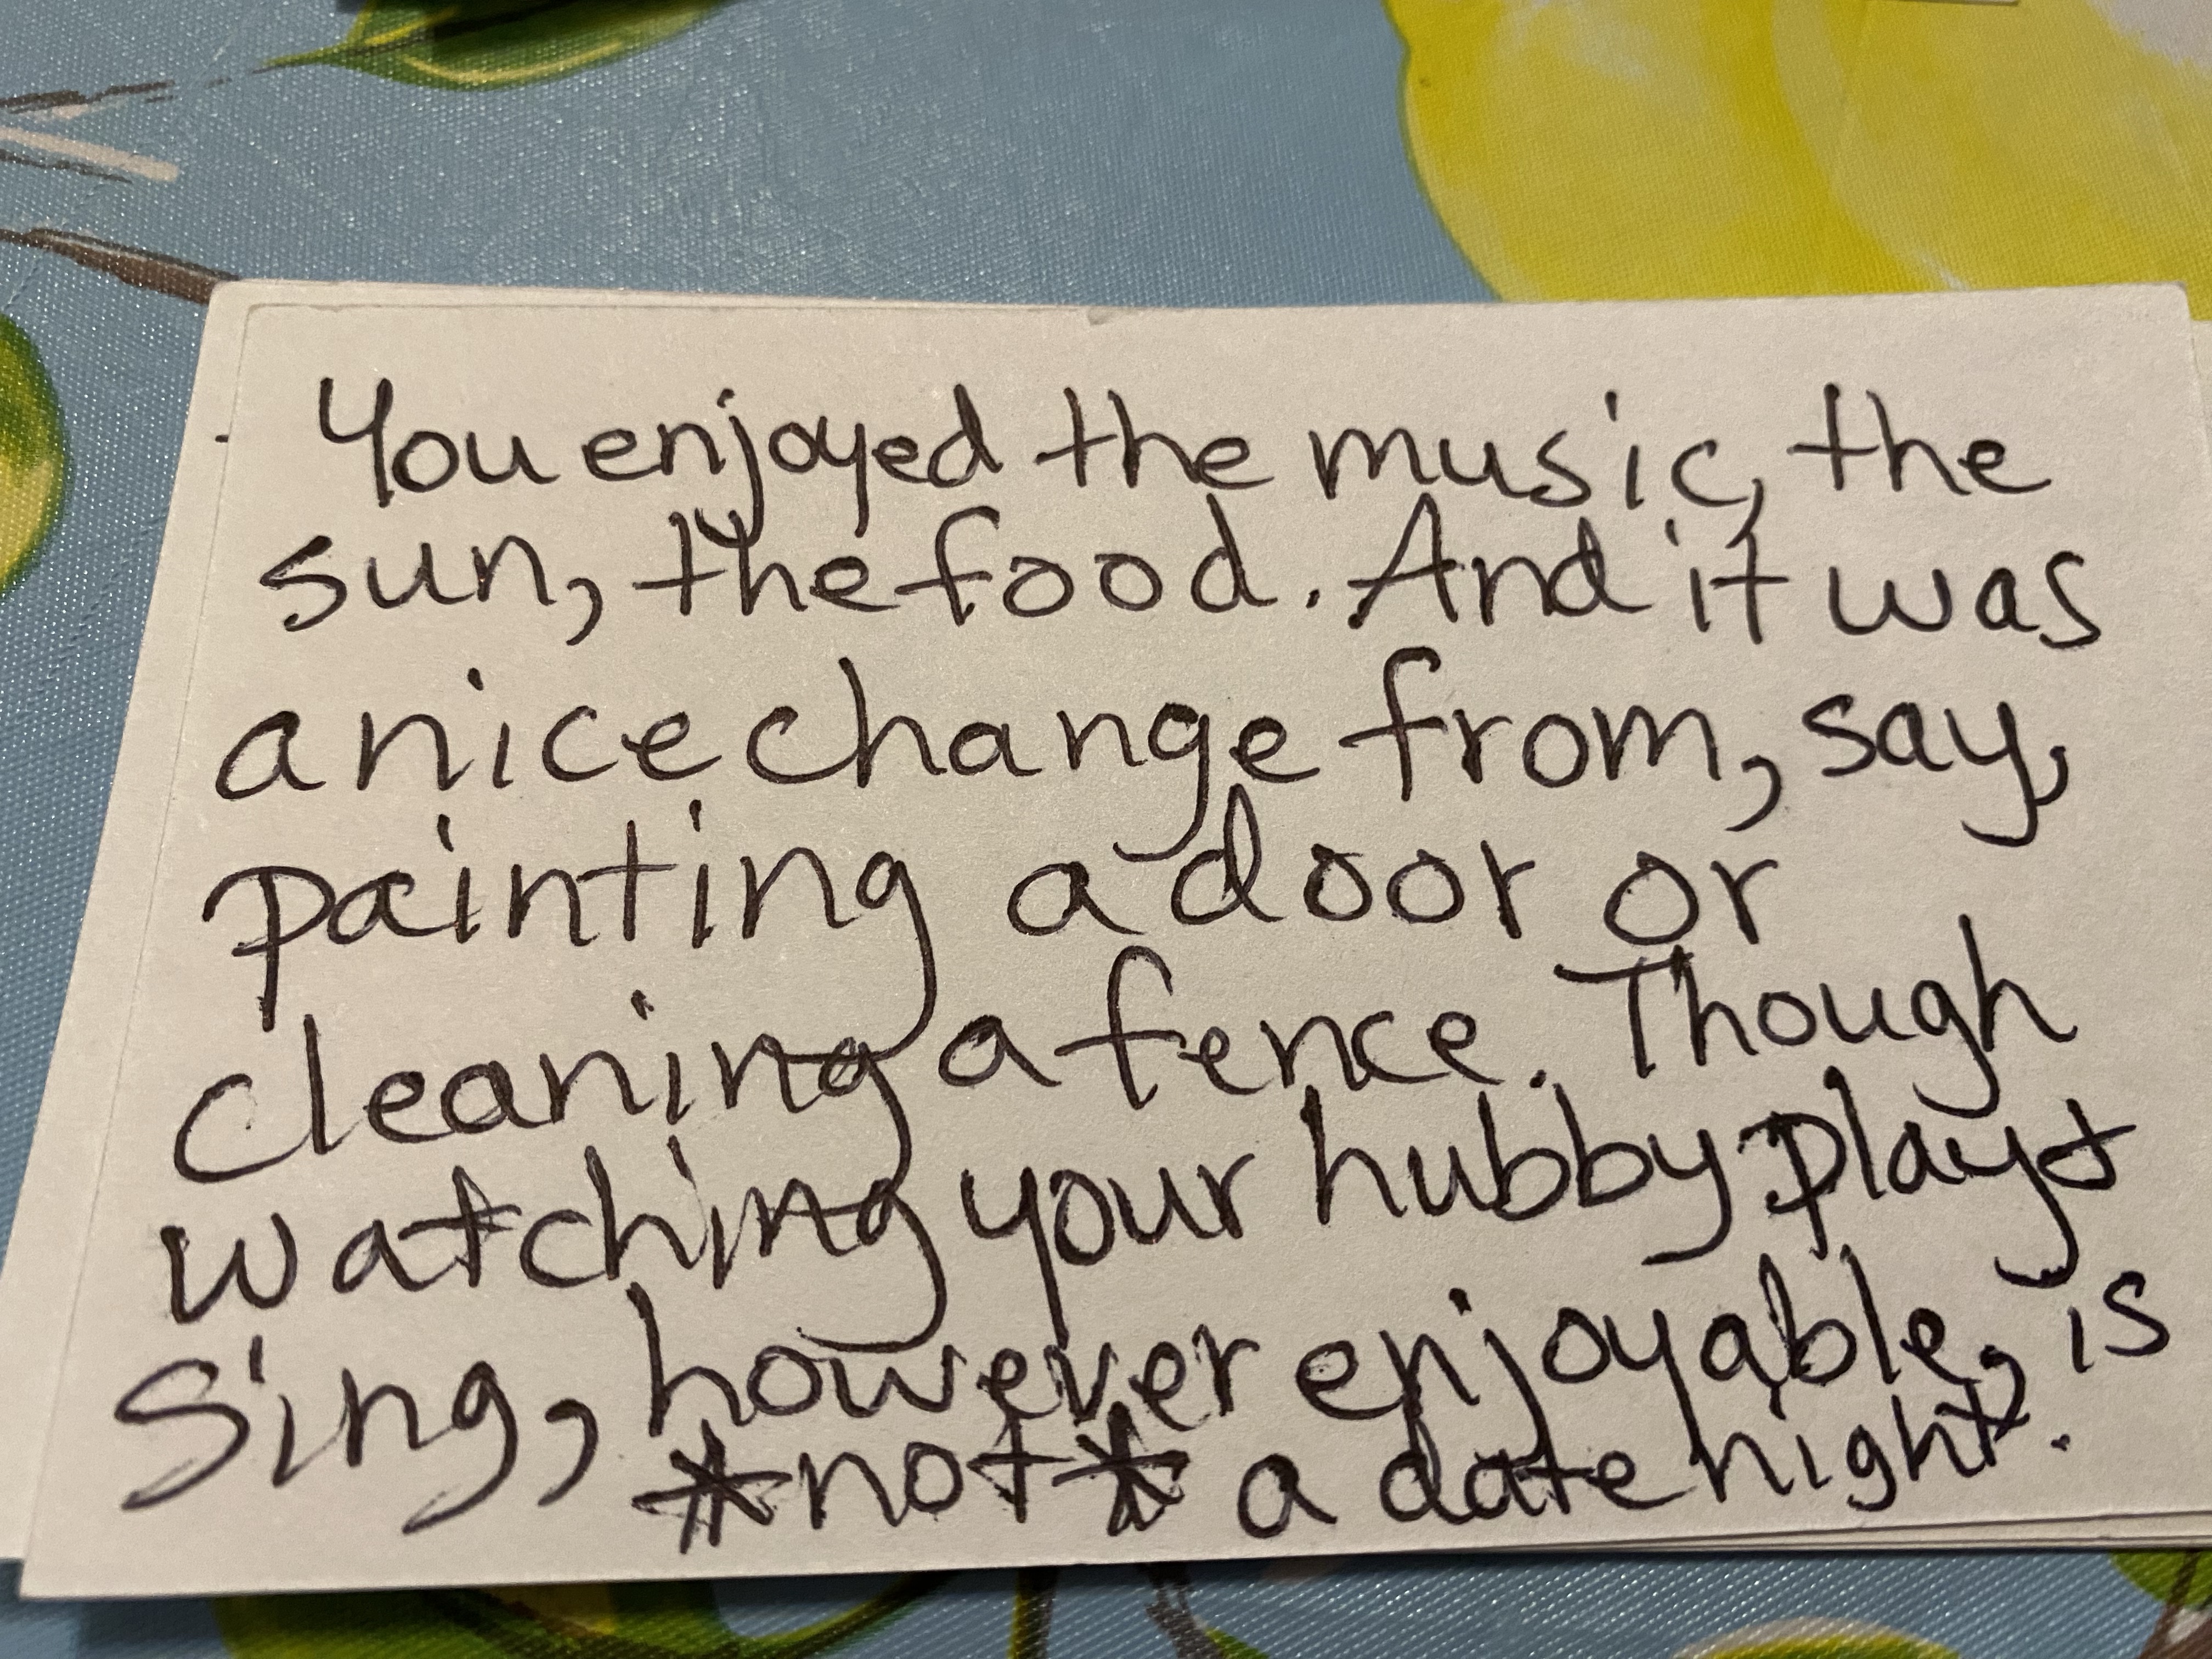 You enjoyed the music, the
sun, the food. And it was
a nice change from, say,
painting a door or
cleaning a fence. Though
watching your hubby play +
sing, however enjoyable, is
*not* a date night.